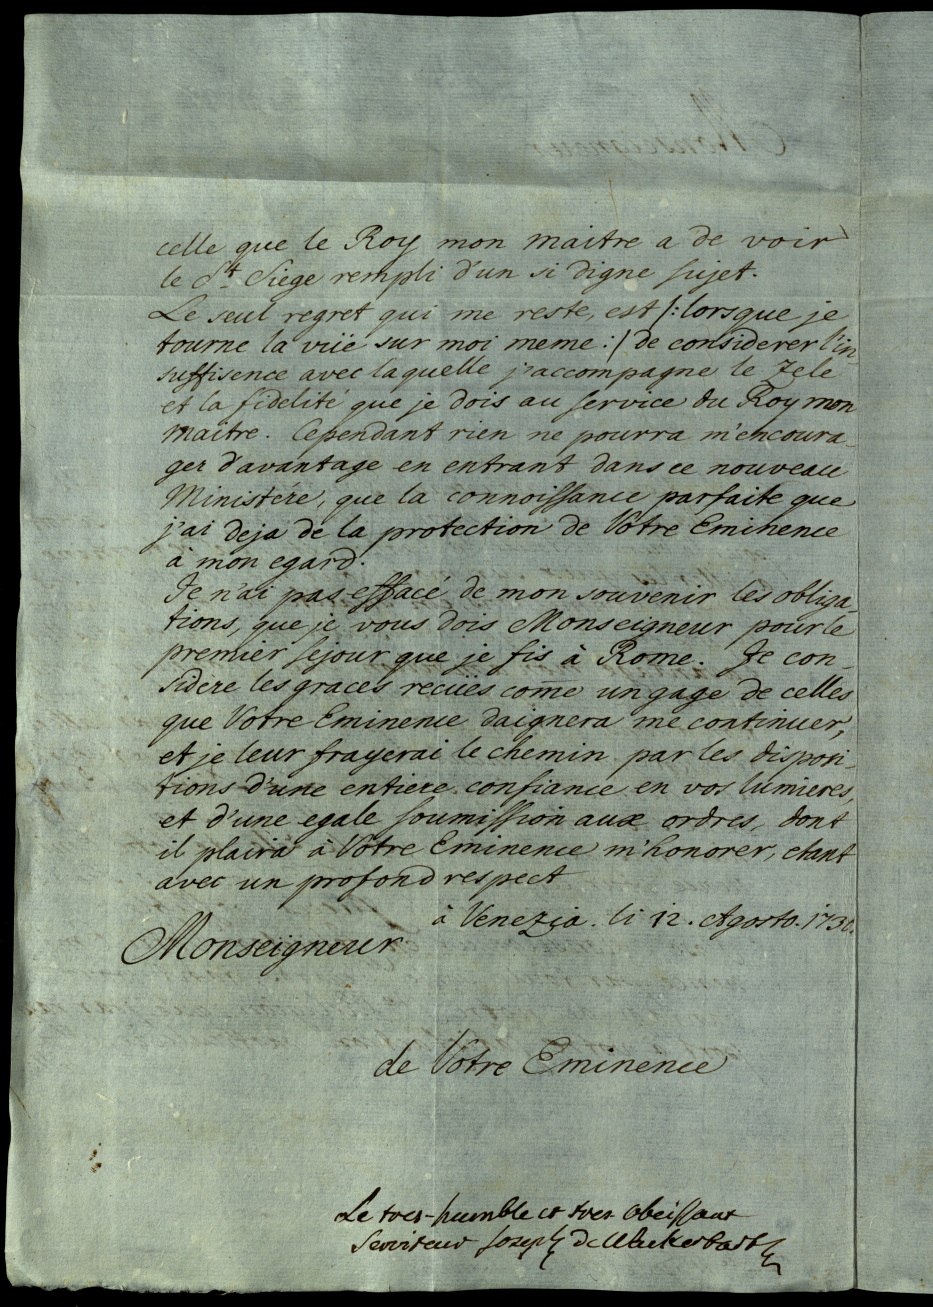 celle que le Roy mon maitre a de voir
le St. Siege rempli d'un si digne sujet.
Le seul regret qui me reste, est /: lorsque je
tourne la vüe sur moi meme :/ de considerer l'in-
suffisence avec laquelle j'accompagne le Zele
et la fidelité que je dois au service du Roy mon
maitre. Cependant rien ne pourra m'encoura-
ger d'avantage en entrant dans ce nouveau
Ministére, que la connoissance parfaite que
j'ai deja de la protection de Votre Eminence
à mon egard.
Je n'ai pas effacé de mon souvenir les obliga-
tions, que je vous dois Monseigneur pour le
premier sejour que je fis à Rome. Je con-
sidere les graces recuës come un gage de celles
que Votre Eminence daignera me continuer,
et je leur frayerai le chemin par les disposi-
tions d'une entiere confiance en vos lumieres,
et d'une egale soumission aux ordres, dont
il plaira à Votre Eminence m'honorer, etant
avec un profond respect
à Venezia. li 12. Agosto. 1730.
Monseigneur
de Votre Eminence
Le tres-humble et tres obeissant
Serviteur Joseph de Wackerbarth